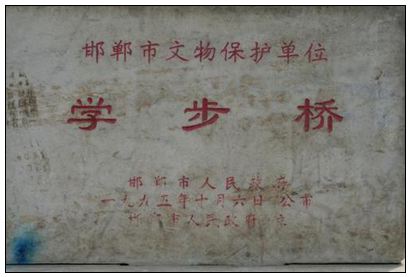 邯郸市文物保护单位
学步桥
邯郸市人民政府
一九六五年十月六日公布
邯郸市人民政府立